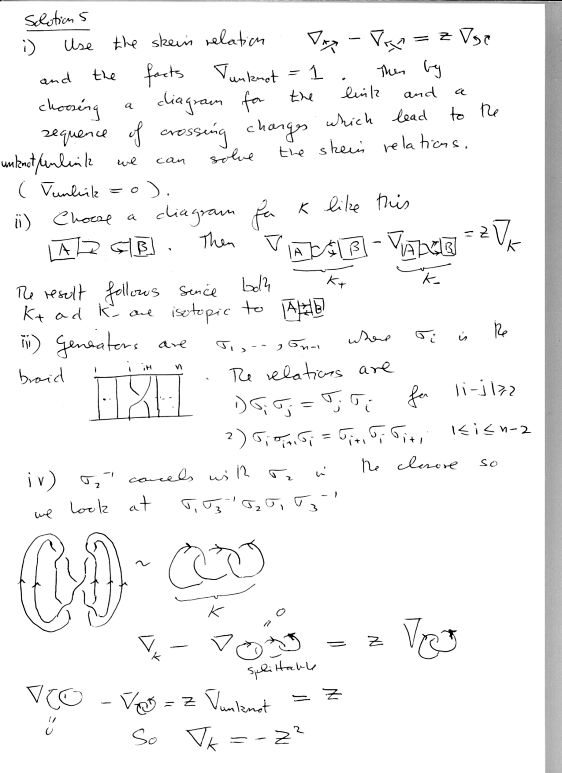 Solution 5
i) Use the skein relation ∇ - ∇ = z ∇
and the facts ∇unknot = 1. Then by
choosing a diagram for the link and a
sequence of crossing changes which lead to the
unknot/unlink we can solve the skein relations.
(∇unlink = 0).
ii) Choose a diagram for K like this
A B . Then ∇ A B - ∇ A B = z ∇K
K+ K-
The result follows since both
K+ and K- are isotopic to A B
iii) Generators are σ1, --, σn-1 where σi is the
braid 1 i i+1 n . The relations are
1) σi σj = σj σi for |i-j| ≥ 2
2) σi σi+1 σi = σi+1 σi σi+1 1 ≤ i ≤ n-2
iv) σ2⁻¹ cancels with σ2 in the closure so
we look at σ1 σ3⁻¹ σ2 σ1 σ3⁻¹
~
K
0
=
∇K - ∇ = z ∇
splittable
∇ - ∇ = z ∇unknot = z
=
0
So ∇K = -z²